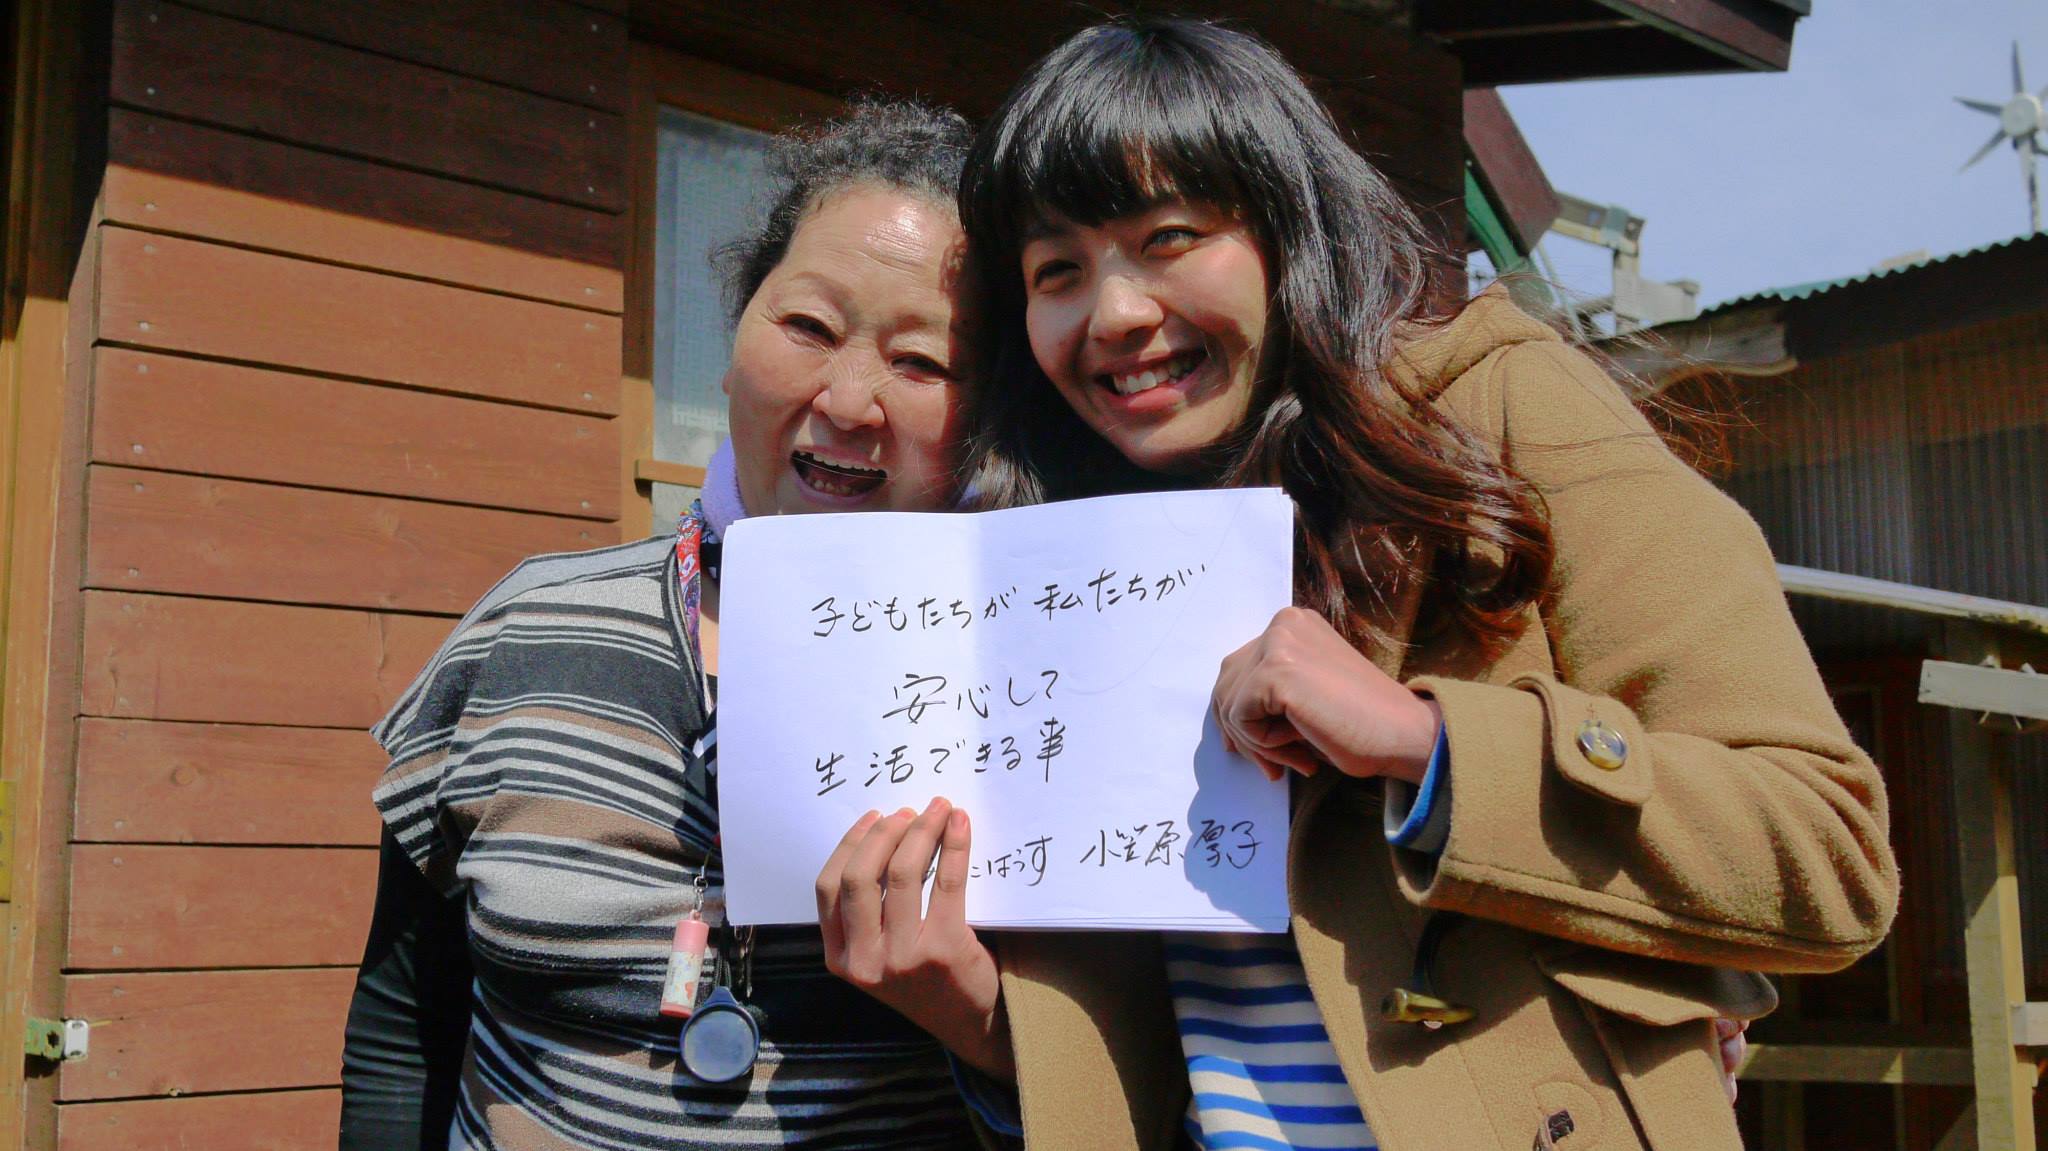 子どもたちが 私たちが
安心して
生活できる事
こはうす 小笠原 厚子